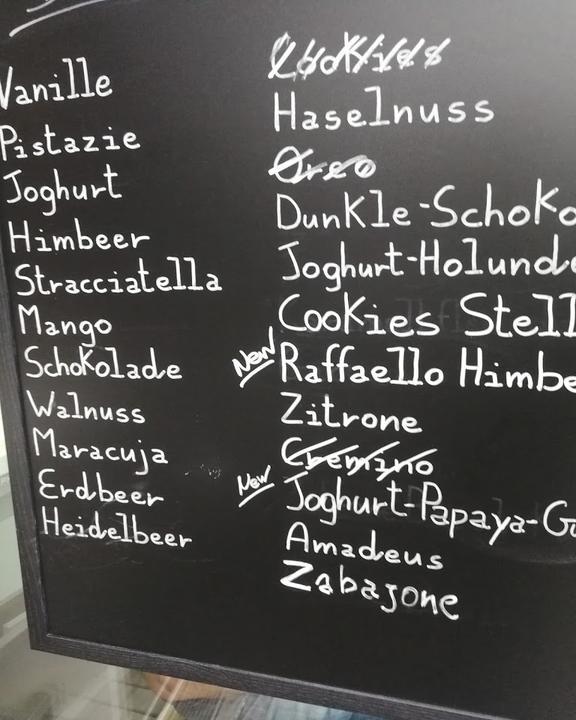 Vanille
Pistazie
Joghurt
Himbeer
Stracciatella
Mango
Schokolade
Walnuss
Maracuja
Erdbeer
Heidelbeer
Cookies
Haselnuss
Oreo
Dunkle-Schoko
Joghurt-Holunde
Cookies Stell
New Raffaello Himbe
Zitrone
Cremino
New Joghurt-Papaya-Gu
Amadeus
Zabajone